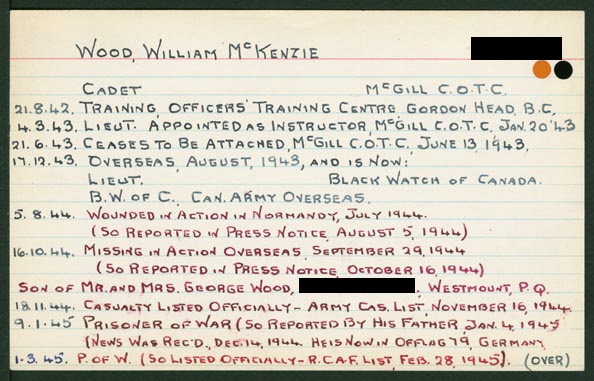 WOOD, WILLIAM McKENZIE
CADET McGILL C.O.T.C.
21.8.42. TRAINING, OFFICERS' TRAINING CENTRE, GORDON HEAD, B.C.
4.3.43. LIEUT. APPOINTED AS INSTRUCTOR, McGILL C.O.T.C, JAN. 20 '43
21.6.43. CEASES TO BE ATTACHED, McGILL C.O.T.C, JUNE 13, 1943.
17.12.43. OVERSEAS, AUGUST, 1943, AND IS NOW:
LIEUT. BLACK WATCH OF CANADA.
B.W. OF C., CAN. ARMY OVERSEAS.
5.8.44. WOUNDED IN ACTION IN NORMANDY, JULY 1944.
(SO REPORTED IN PRESS NOTICE, AUGUST 5, 1944)
16.10.44. MISSING IN ACTION OVERSEAS, SEPTEMBER 29, 1944
(SO REPORTED IN PRESS NOTICE, OCTOBER 16, 1944)
SON OF MR. AND MRS. GEORGE WOOD, , WESTMOUNT, P.Q.
18.11.44. CASUALTY LISTED OFFICIALLY - ARMY CAS. LIST, NOVEMBER 16, 1944.
9.1.45 PRISONER OF WAR (SO REPORTED BY HIS FATHER, JAN. 4, 1945
(NEWS WAS REC'D, DEC. 14, 1944. HE IS NOW IN OFFLAG 79, GERMANY
1.3.45. P. OF W. (SO LISTED OFFICIALLY - R.C.A.F. LIST, FEB. 28, 1945). (OVER)